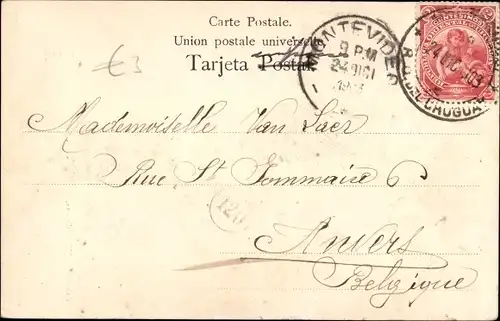 Carte Postale.
Union postale universelle
Tarjeta Postal
€3
MONTEVIDEO
9 P.M
24 DICI
Mademoiselle Van Laer
Rue St Tommaire 6
120
Anvers
Belgique